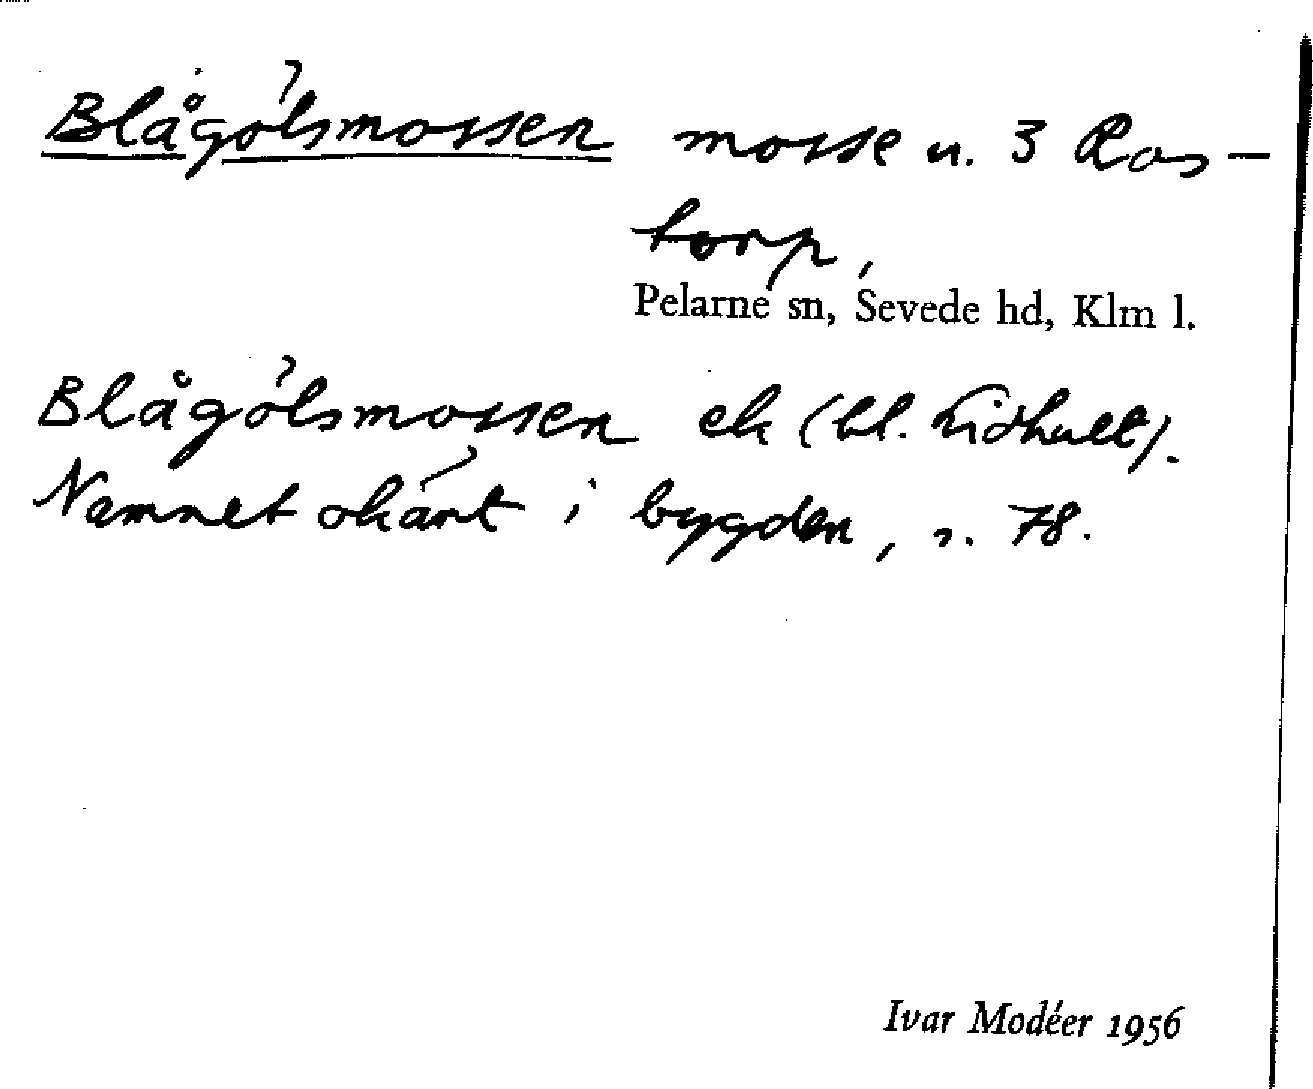 Blågölsmossen mosse u. 3 Ros-
torp,
Pelarne sn, Sevede hd, Klm l.
Blågölsmossen ek (bl. Vidhult).
Namnet okänt i bygden, s. 78.
Ivar Modéer 1956